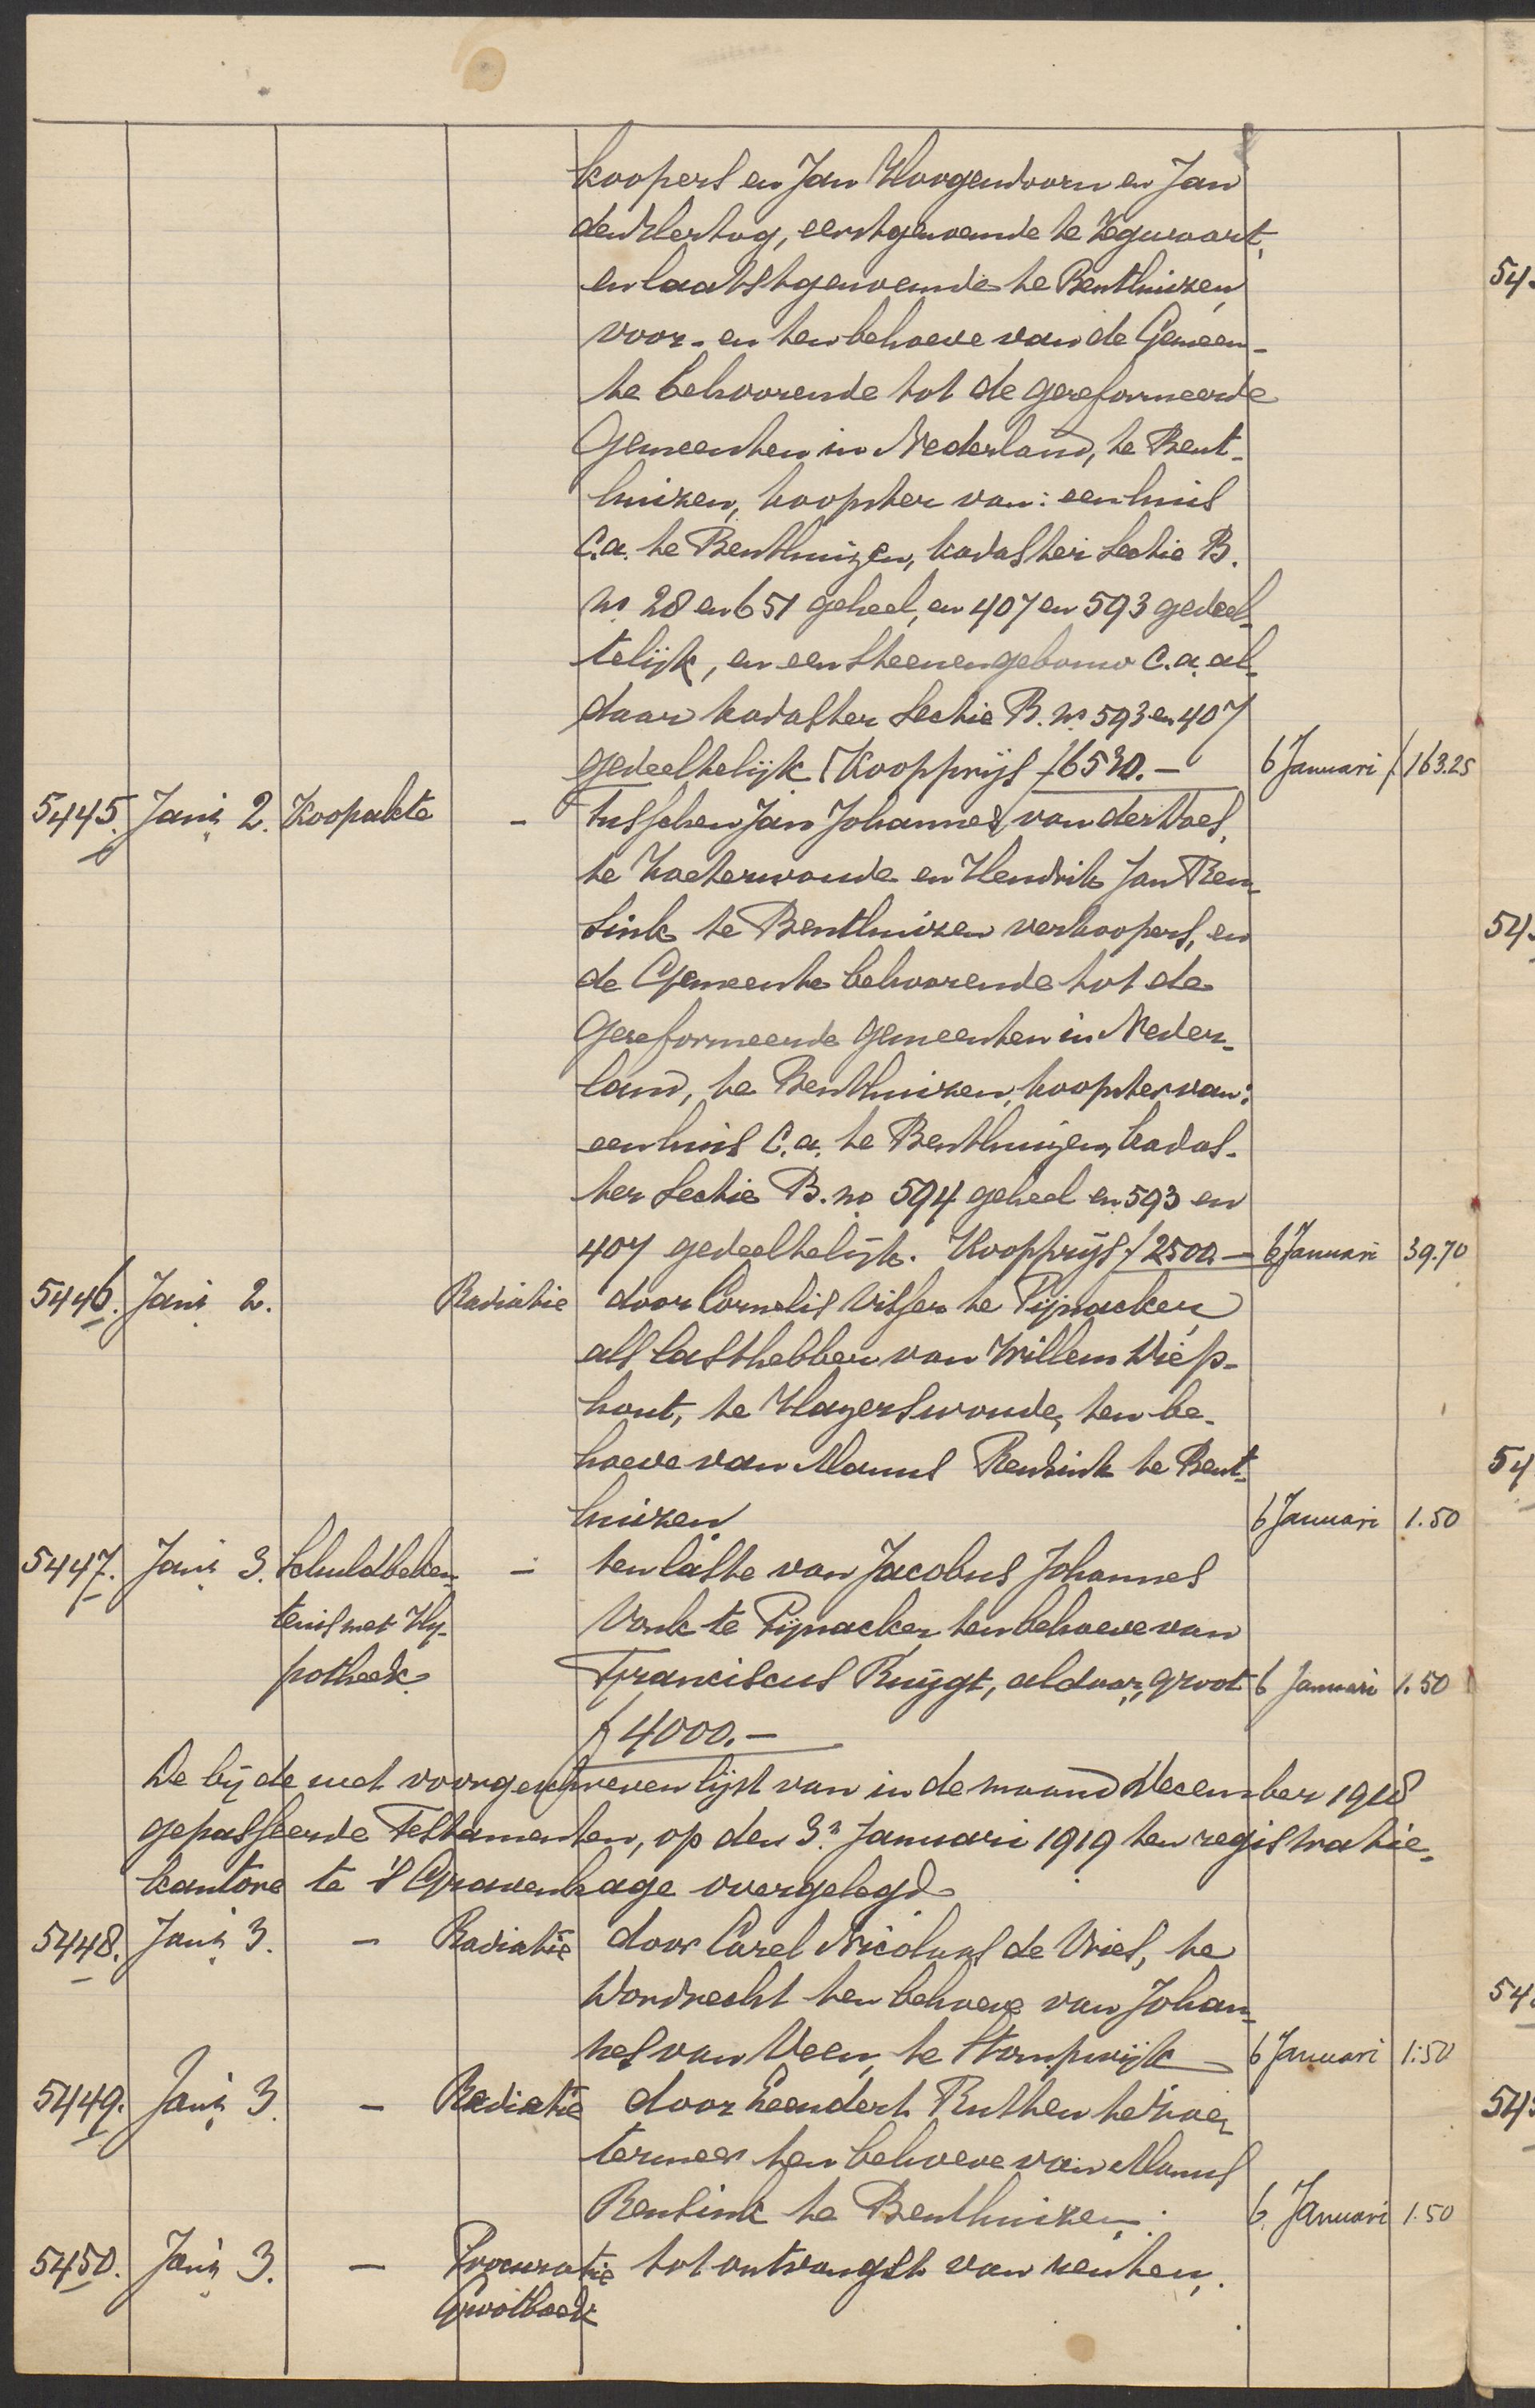 koopers en Jan Hoogendoorn en Jan
den Hertog, eerstgenoemde te Zegwaart,
en laatstgenoemde te Benthuizen,
voor- en ten behoeve van de Gemeen-
te behoorende tot de gereformeerde
Gemeenten in Nederland, te Bent-
huizen, koopster van: een huis
c.a. te Benthuizen, kadaster Sectie B.
no 28 en 651 geheel, en 407 en 593 gedeel-
telijk, en een steenen gebouw c.a. al-
daar kadaster Sectie B. no 593 en 407
gedeeltelijk Koopprijs f 6530.- 6 Januari f 163.25
5445. Jani 2. Koopakte - tusschen Jan Johannes van der Voes,
te Zoeterwoude en Hendrik Jan Ren-
sink te Benthuizen verkoopers, en
de Gemeente behoorende tot de
Gereformeerde gemeenten in Neder-
land, te Benthuizen, koopster van:
een huis c.a. te Benthuizen, kadas-
ter Sectie B. no 594 geheel en 593 en
407 gedeeltelijk. Koopprijs f 2500.- 6 Januari 39.70
5446. Jani 2. Radiatie door Cornelis Visser te Pijnacker,
als lasthebber van Willem Diep-
hout, te Hazerswoude, ten be-
hoeve van Manus Rensink te Bent-
huizen 6 Januari 1.50
5447. Jani 3. Schuldbeken- - ten laste van Jacobus Johannes
tenis met Hy- Vonk te Pijnacker ten behoeve van
potheek Franciscus Ruijgt, aldaar, groot 6 Januari 1.50
f 4000.-
De bij de wet voorgeschreven lijst van in de maand December 1918
gepasseerde Testamenten, op den 3n Januari 1919 ten registratie-
kantore te 's Gravenhage overgelegd
5448. Jani 3. - Radiatie door Carel Nicolaas de Vries, te
Dordrecht ten behoeve van Johan-
nes van Veen, te Stompwijk 6 Januari 1.50
5449. Jani 3. - Radiatie door Leendert Ruthen te Zoe-
termeer ten behoeve van Manus
Rensink te Benthuizen. 6 Januari 1.50
5450. Jani 3. - Procuratie tot ontvangst van renten,
Grootboek
54.
54.
54
54.
54